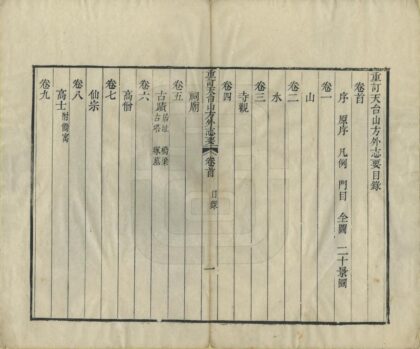 重訂天台山方外志要目錄
卷首
序 原序 凡例 門目 全圖 二十景圖
卷一
山
卷二
水
卷三
寺觀
卷四
重訂天台山方外志要 卷首 目錄 一
祠廟
卷五
古蹟 舊址 橋梁 古塔 塚墓
卷六
高僧
卷七
仙宗
卷八
高士 附僑寓
卷九